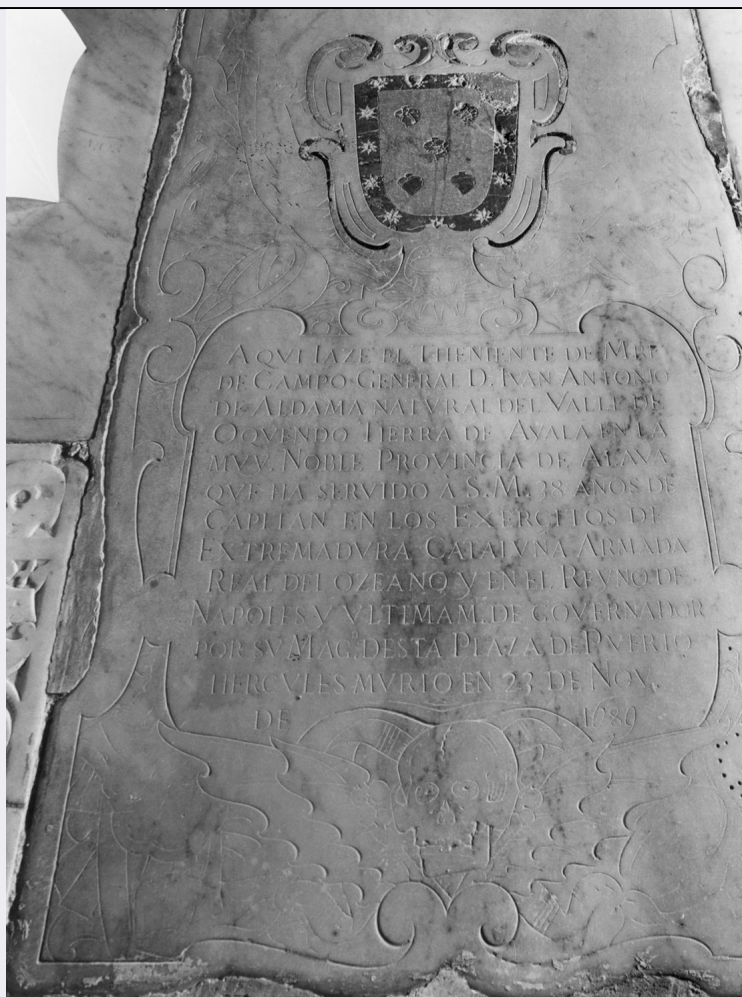 AQVI IAZE EL THENIENTE DE
DE CAMPO GENERAL D. IVAN ANTONIO
DE ALDAMA NATVRAL DEL VALLE DE
OQVENDO TIERRA DE AYALA EN LA
MVY NOBLE PROVINCIA DE ALAVA
QVE HA SERVIDO A S.M. 38 AÑOS DE
CAPITAN EN LOS EXERCITOS DE
EXTREMADVRA CATALVNA ARMADA
REAL DEL OZEANO Y EN EL REYNO DE
NAPOLES Y VLTIMAM. DE GOVERNADOR
POR SV MAG. DESTA PLAZA DE PVERTO
HERCVLES MVRIO EN 23 DE NOV.
DE 1680